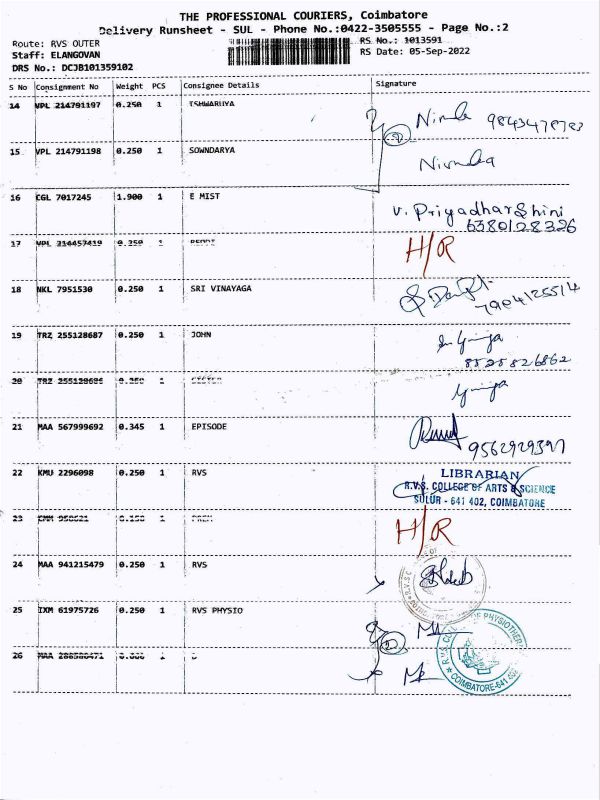 THE PROFESSIONAL COURIERS, Coimbatore
Delivery Runsheet - SUL - Phone No.:0422-3505555 - Page No.:2
Route: RVS OUTER
RS No.: 1013591
Staff: ELANGOVAN
RS Date: 05-Sep-2022
DRS No.: DCJB101359102
S No Consignment No Weight PCS Consignee Details Signature
14 VPL 214791197 0.250 1 ISHWARUYA
15 VPL 214791198 0.250 1 SOWNDARYA
16 CGL 7017245 1.900 1 E MIST V. Priyadharshini
6380128326
17 VPL 214457419 0.250 1 H/R
18 NKL 7951530 0.250 1 SRI VINAYAGA
19 TRZ 255128687 0.250 1 JOHN
8825826862
20 TRZ 0.250 1
21 MAA 567999692 0.345 1 EPISODE
22 KMU 2296098 0.250 1 RVS LIBRARIAN
R.V.S. COLLEGE OF ARTS & SCIENCE
SULUR - 641 402, COIMBATORE
23 0.150 1 H/R
24 MAA 941215479 0.250 1 RVS
25 IXM 61975726 0.250 1 RVS PHYSIO
26 MAA 1